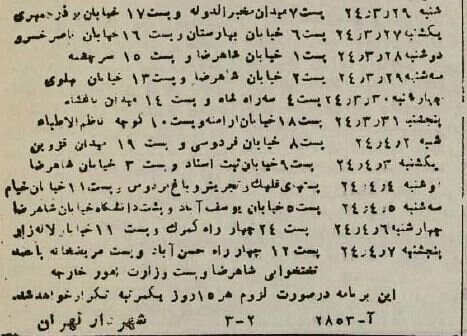 شنبه ۲۴٫۳٫۲۹ پست ۷ میدان مخبرالدوله و پست ۱۷ خیابان بوذرجمهری
یکشنبه ۲۴٫۳٫۲۷ پست ۶ خیابان بهارستان و پست ۱۶ خیابان ناصرخسرو
دوشنبه ۲۴٫۳٫۲۸ پست ۱ خیابان شاهرضا و پست ۱۵ سرچشمه
سه‌شنبه ۲۴٫۳٫۲۹ پست ۲ خیابان شاهرضا و پست ۱۳ خیابان پهلوی
چهارشنبه ۲۴٫۳٫۳۰ پست ۴ سه‌راه شاه و پست ۱۴ میدان باغشاه
پنجشنبه ۲۴٫۳٫۳۱ پست ۱۸ خیابان ارامنه و پست ۱۰ کوچه ناظم‌الاطباء
شنبه ۲۴٫۴٫۲ پست ۸ خیابان فردوسی و پست ۱۹ میدان قزوین
یکشنبه ۲۴٫۴٫۳ پست ۹ خیابان ثبت اسناد و پست ۳ خیابان شاهرضا
دوشنبه ۲۴٫۴٫۴ پستهای قلهک و تجریش و باغ فردوس و پست ۱۱ خیابان خیام
سه‌شنبه ۲۴٫۴٫۵ پست ۵ خیابان یوسف آباد و پشت دانشگاه خیابان شاهرضا
چهارشنبه ۲۴٫۴٫۶ پست ۲۴ چهار راه گمرک و پست ۱۱ خیابان لاله‌زار
پنجشنبه ۲۴٫۴٫۷ پست ۱۲ چهار راه حسن‌آباد و پست مریضخانه پانصد
تختخوابی شاهرضا و پست وزارت امور خارجه
این برنامه درصورت لزوم هر ۱۵ روز یکمرتبه تکرار خواهد شد.
آ-۲۸۵۳ ۲-۳ شهردار تهران